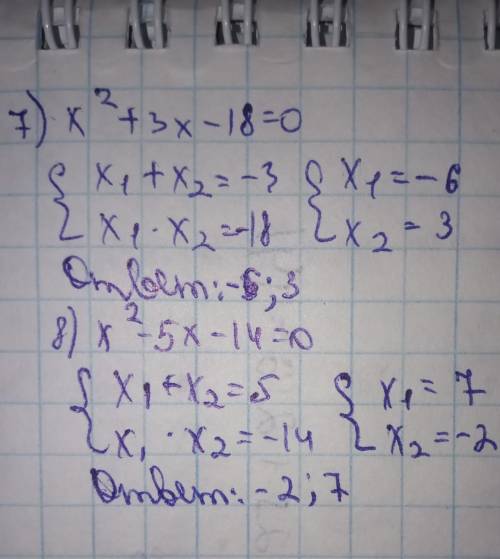 7) x² + 3x - 18 = 0
{ x₁ + x₂ = -3 { x₁ = -6
x₁ · x₂ = -18 x₂ = 3
Ответ: -6; 3
8) x² - 5x - 14 = 0
{ x₁ + x₂ = 5 { x₁ = 7
x₁ · x₂ = -14 x₂ = -2
Ответ: -2; 7